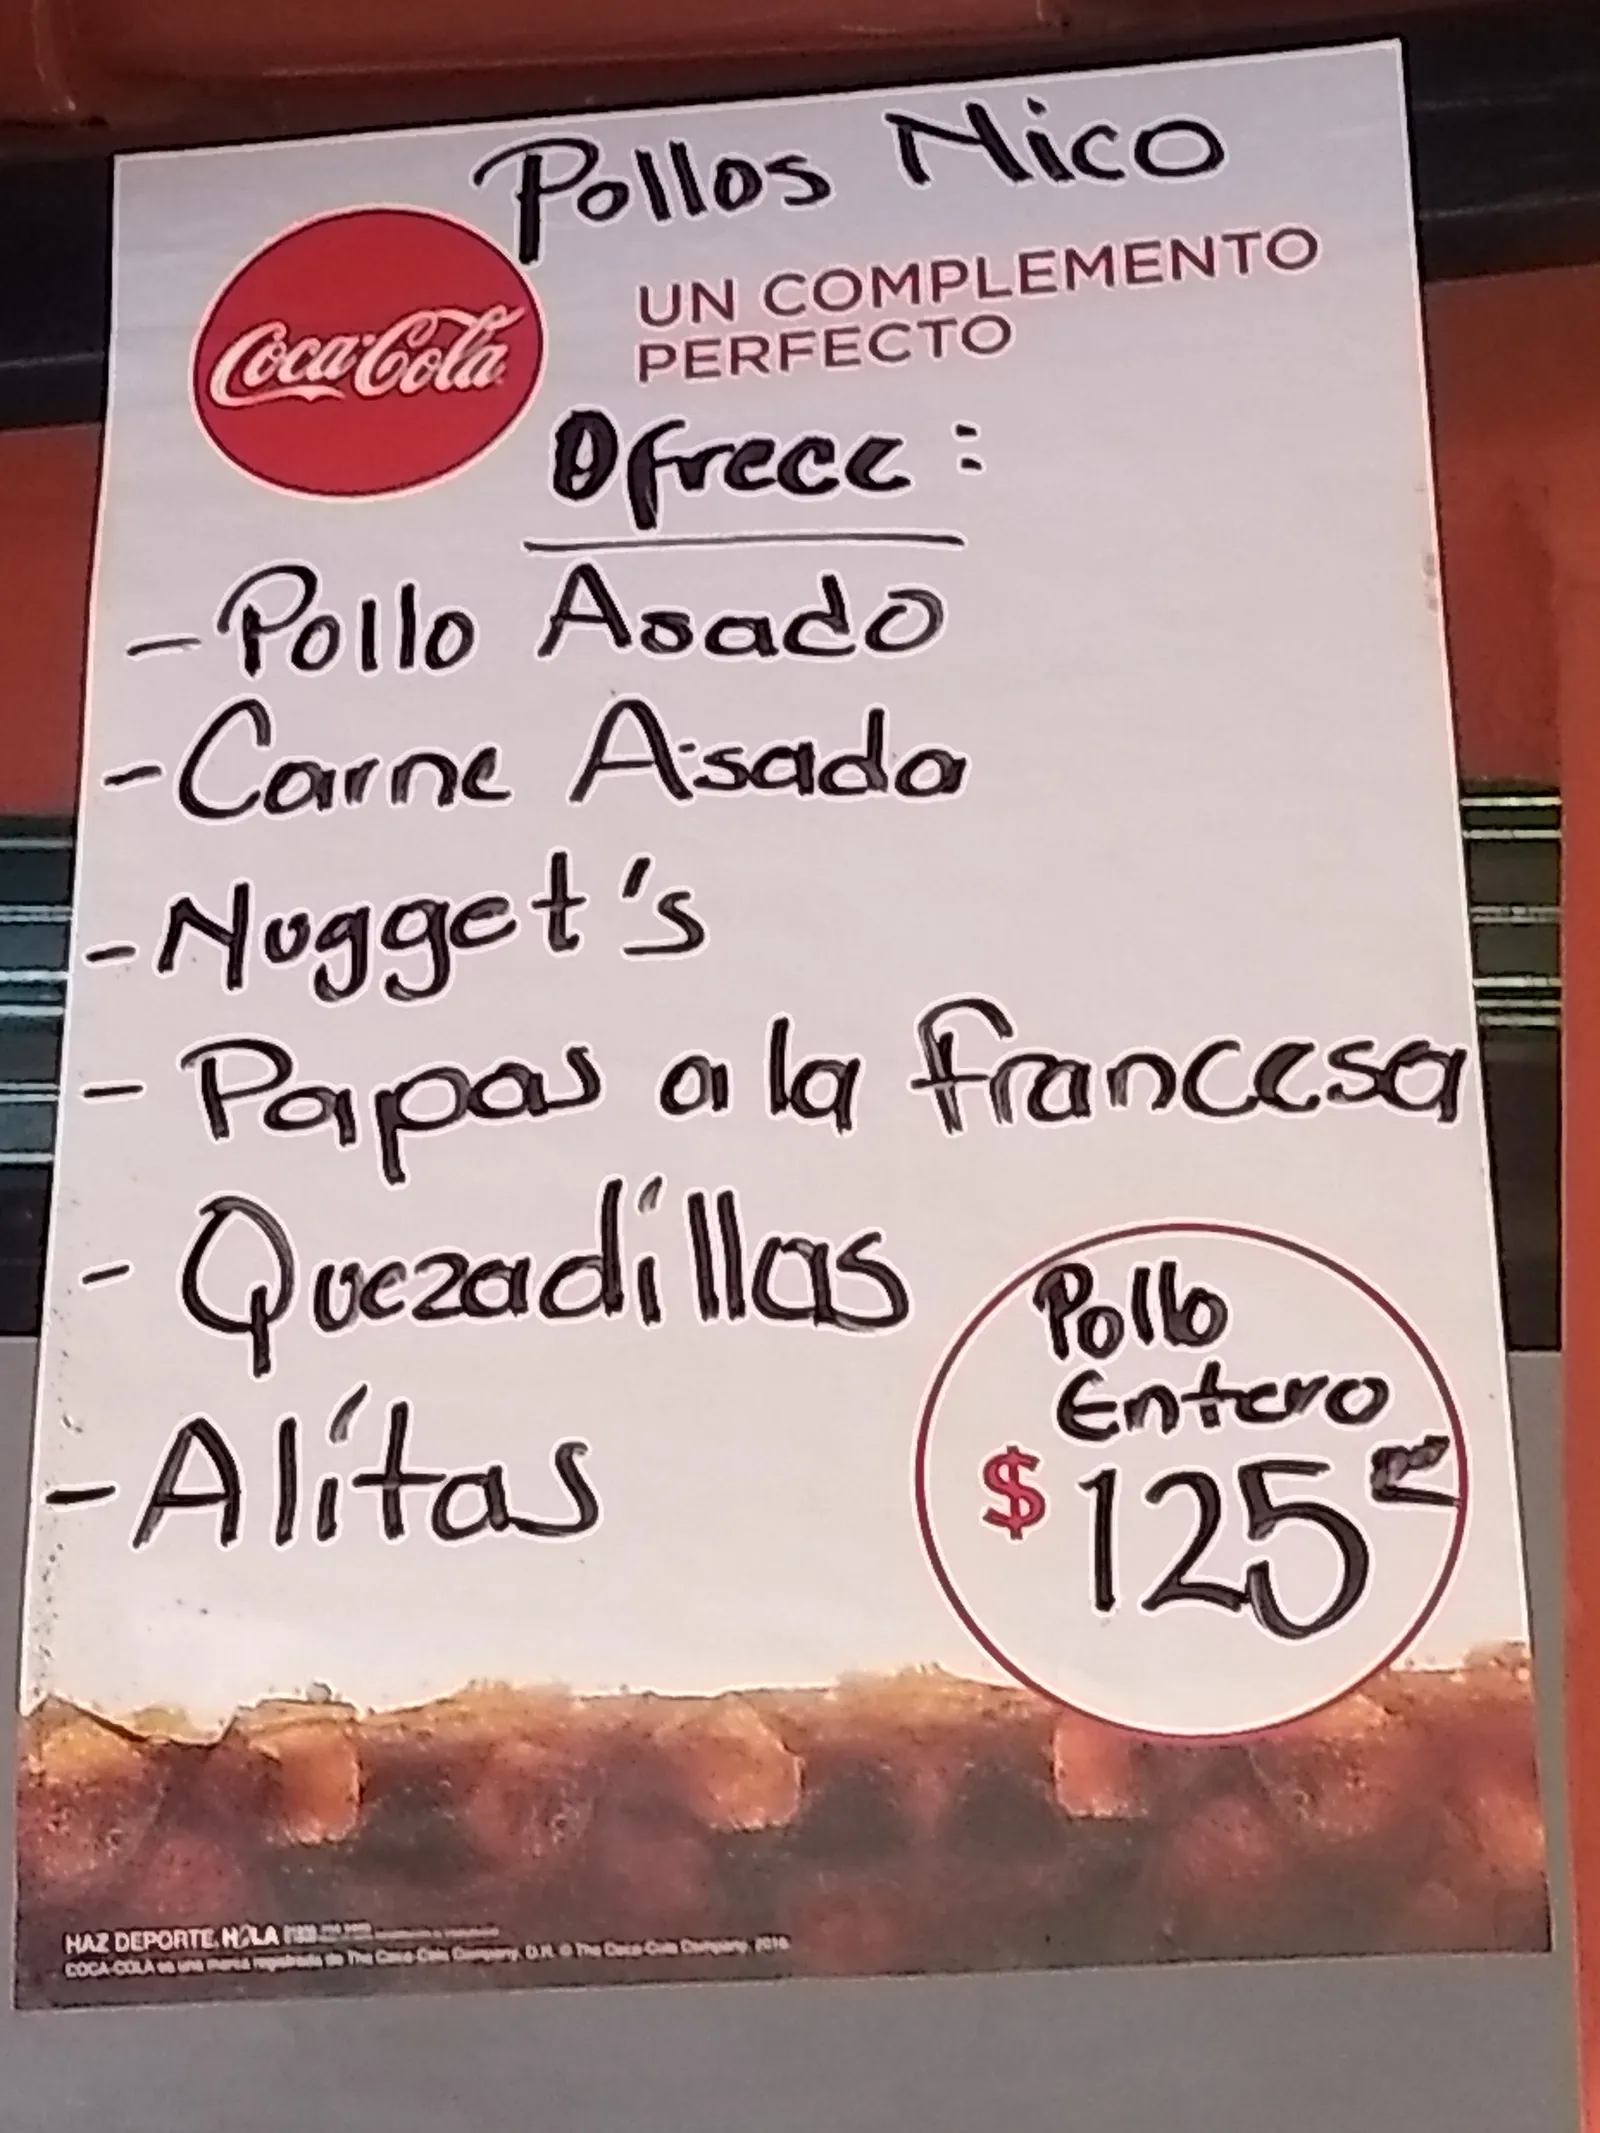 Pollos Nico
Coca-Cola
UN COMPLEMENTO
PERFECTO
Ofrece:
- Pollo Asado
- Carne Asada
- Nugget's
- Papas a la francesa
- Quezadíllas
- Alítas
Pollo
Entero
$ 125
HAZ DEPORTE.
COCA-COLA es una marca registrada de The Coca-Cola Company, D.R. © The Coca-Cola Company, 2016.